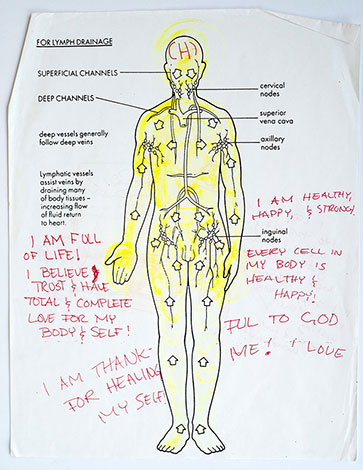 FOR LYMPH DRAINAGE
SUPERFICIAL CHANNELS
DEEP CHANNELS
deep vessels generally
follow deep veins
Lymphatic vessels
assist veins by
draining many
of body tissues –
increasing flow
of fluid return
to heart.
cervical
nodes
superior
vena cava
axillary
nodes
inguinal
nodes
I AM FULL
OF LIFE!
I BELIEVE,
TRUST & HAVE
TOTAL & COMPLETE
LOVE FOR MY
BODY & SELF!
I AM HEALTHY,
HAPPY, & STRONG!
EVERY CELL IN
MY BODY IS
HEALTHY &
HAPPY!
I AM THANK-
FUL TO GOD
FOR HEALING
ME! I LOVE
MY SELF!